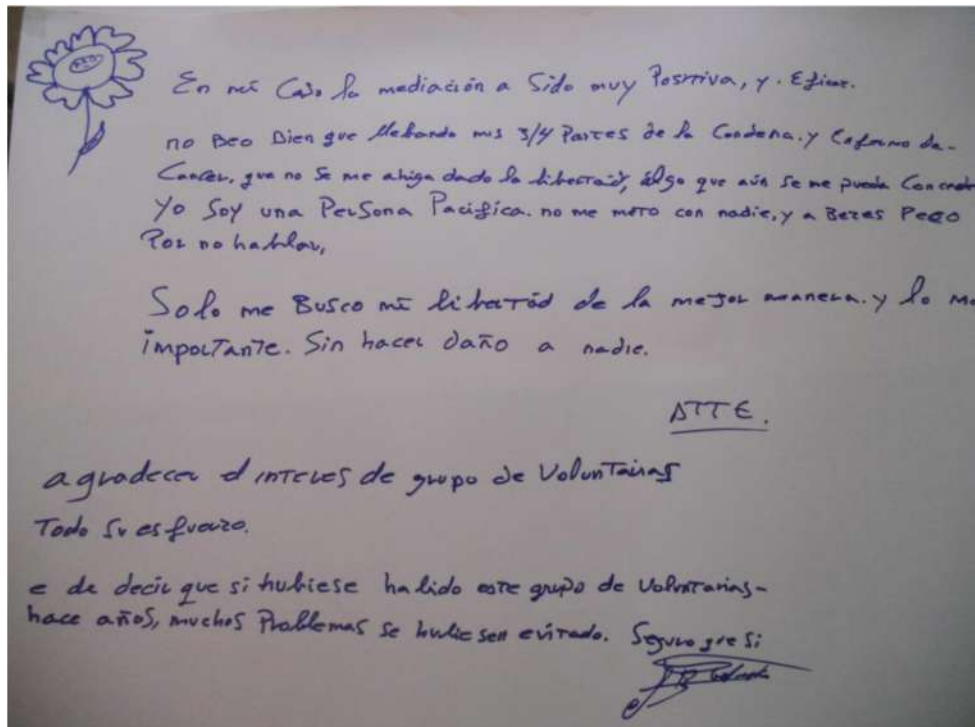 En mi Caso la mediación a Sido muy Positiva, y. Eficaz.
no Beo Bien que llebando mis 3/4 Partes de la Condena. y Enfermo de-
Cancer, que no Se me ahiga dado la libertad, álgo que aún Se me pueda
Yo Soy una Persona Pacifica. no me meto con nadie, y a Bezes Peco
Por no hablar,
Solo me Busco mi libertad de la mejor manera. y lo
importante. Sin hacer daño a nadie.
ATTE.
agradecer el interes de grupo de Voluntarias
Todo Su esfuerzo.
e de decir que si hubiese habido este grupo de Voluntarias-
hace años, muchos Problemas se hubiesen evitado. Seguro que Si